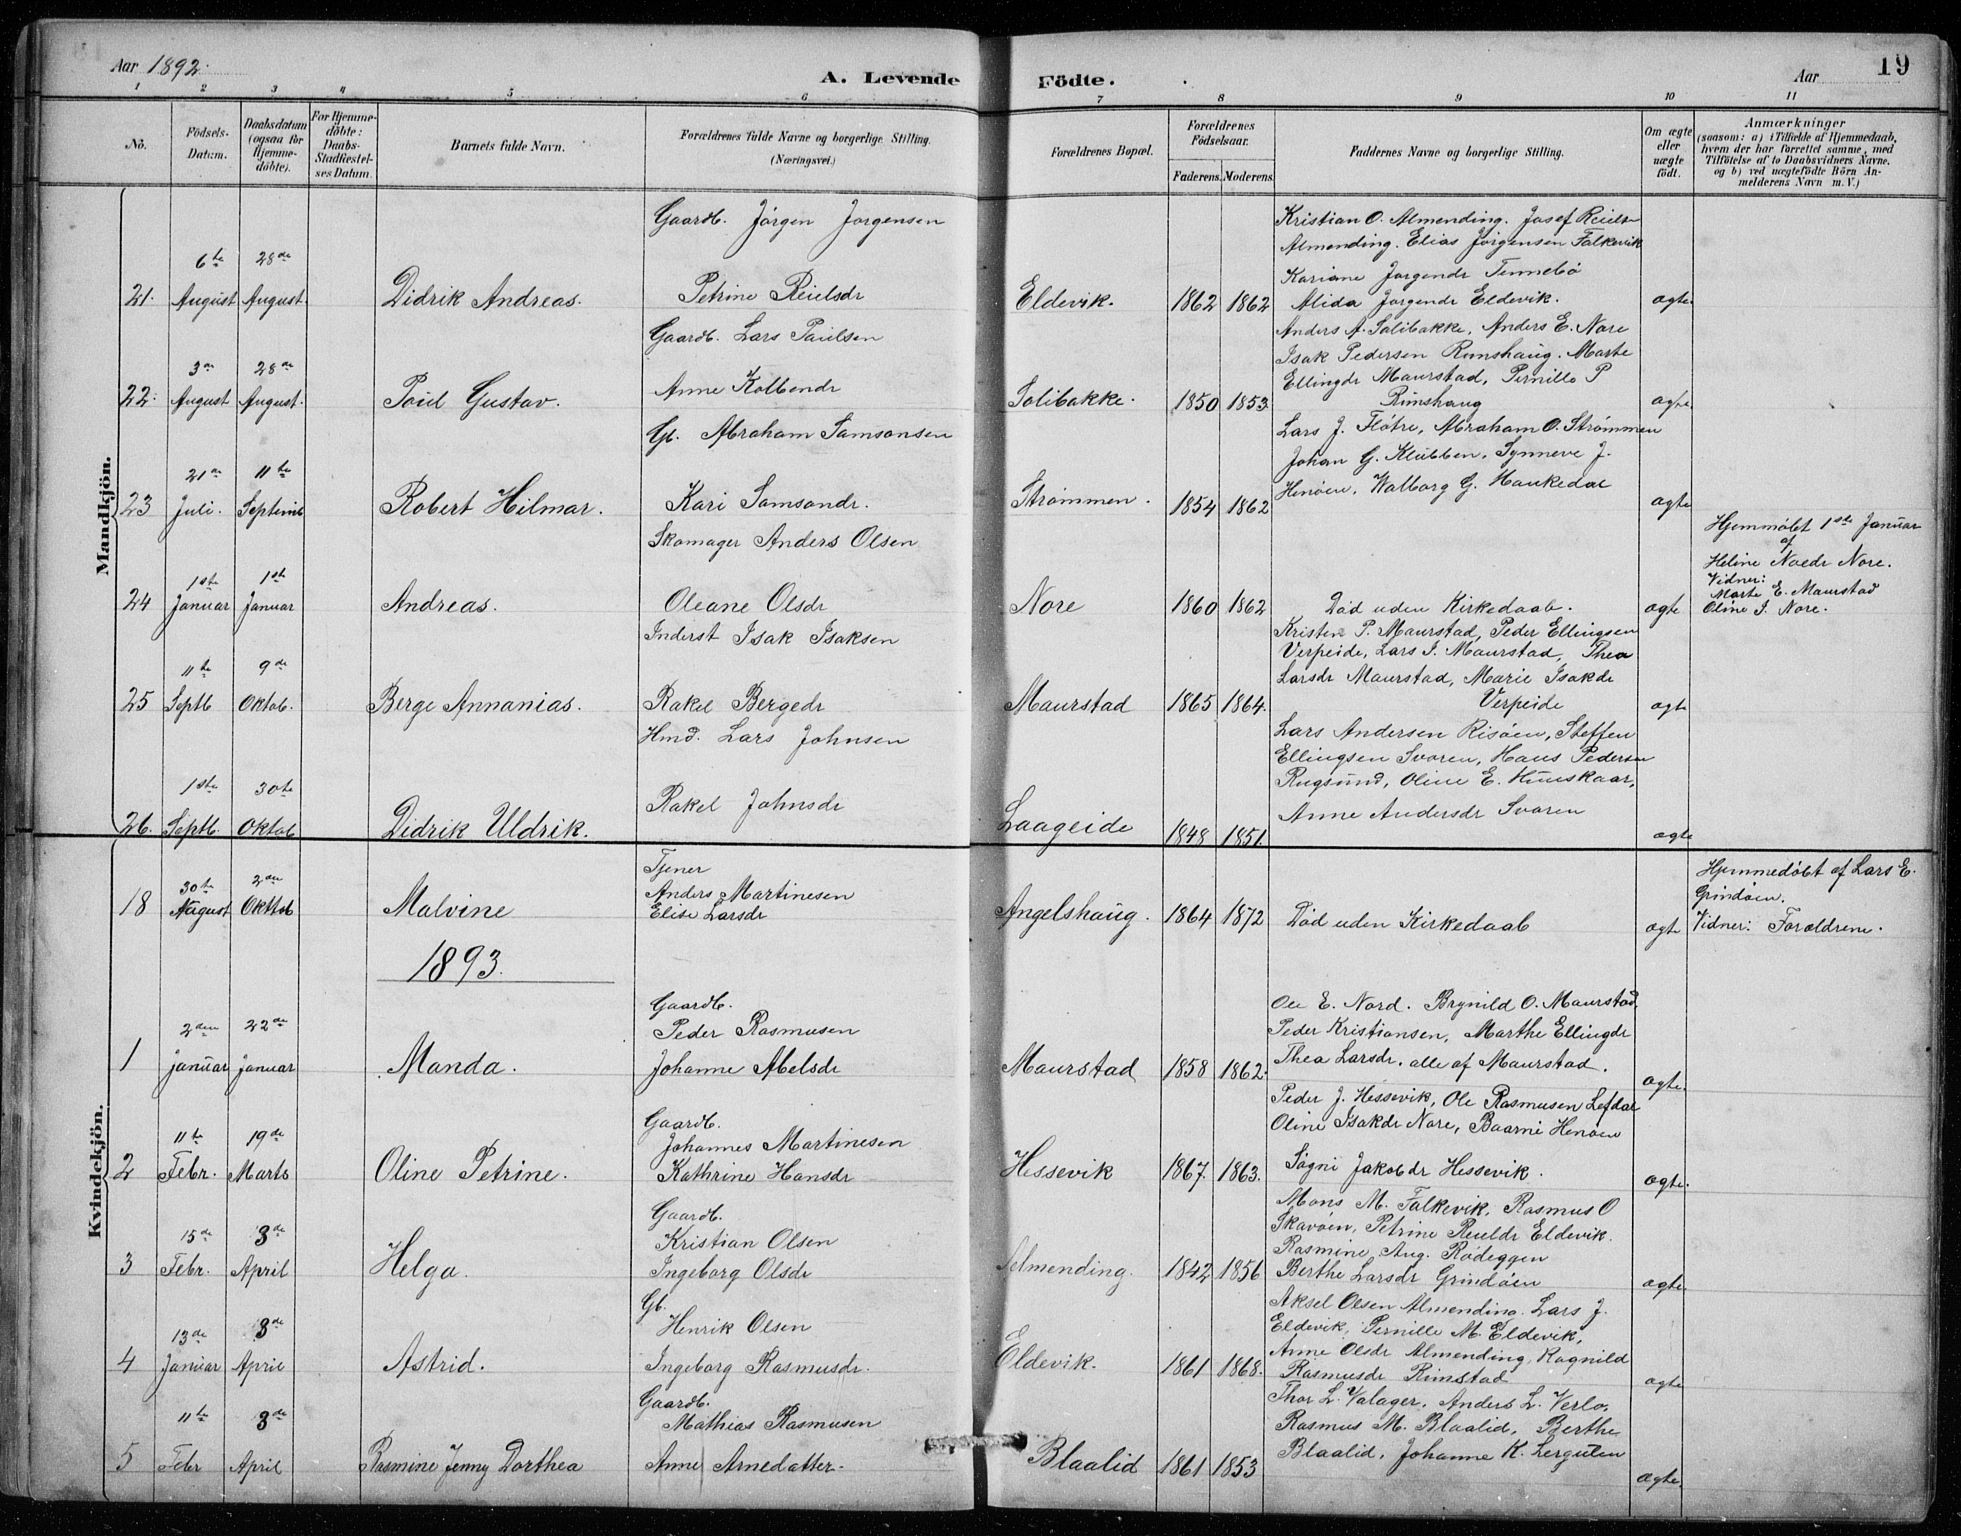 Aar 1892.
A. Levende Födte.
Aar
19
1 2 3 4 5 6 7 8 9 10 11
No.
Födsels-Datum.
Daabsdatum (ogsaa for Hjemme-döbte).
For Hjemme-döbte: Daabs-Stadfæstel-ses Datum.
Barnets fulde Navn.
Forældrenes fulde Navne og borgerlige Stilling. (Næringsvei.)
Forældrenes Bopæl.
Forældrenes Födselsaar.
Faderens. Moderens.
Faddernes Navne og borgerlige Stilling.
Om ægte eller uægte födt.
Anmærkninger
(saasom: a) i Tilfælde af Hjemmedaab,
hvem der har forrettet samme, med
Tilföielse af to Daabsvidners Navne.
og b) ved uægtefödte Börn An-
melderens Navn m. V.)
Mandkjön.
21. 6te August 28de August.
Didrik Andreas.
Gaardb. Jörgen Jorgensen
Petrine Reielsdr
Eldevik. 1862 1862
Kristian O. Almending. Josef Reiels
Almending. Elias Jörgensen Falkevik
Kariane Jorgendr Tennebö
Alida Jorgendr Eldevik.
ægte
22. 3die August 28de August.
Poul Gustav.
Gaardb. Lars Paulsen
Anne Kolbendr
Solibakke. 1850 1853
Anders A. Solibakke, Anders E. Nore
Isak Pedersen Rimshaug. Marte
Ellingdr Maurstad, Pernille P
Rimshaug
ægte
23 21de Juli. 11te Septemb
Robert Hilmar.
Gb. Abraham Samsonsen
Kari Samsondr.
Strömmen. 1854 1862
Lars J. Flötre, Abraham O. Strömmen
Johan G. Klubben, Synneve J.
Henöen, Walborg G. Haukedal
ægte
24 1ste Januar 1ste Januar
Andreas.
Skomager Anders Olsen
Oleane Olsdr
Nore 1860 1862
Död uden Kirkedaab.
ægte
Hjemmöbt 1ste Januar
af
Heline Noedr Nore.
Vidner:
Marte E. Maurstad
Oline I. Nore.
25 11te Septb 9de Oktob.
Berge Annanias.
Inderst Isak Isaksen
Rakel Bergedr
Maurstad 1865 1864.
Kristen P. Maurstad, Peder Ellingsen
Verpeide, Lars I. Maurstad, Thea
Larsdr Maurstad, Marie Isakdr
Verpeide
ægte
26. 1ste Septb. 30te Oktob
Didrik Uldrik.
Hmd. Lars Johnsen
Rakel Johnsdr
Laageide 1848 1851.
Lars Andersen Risöen, Steffen
Ellingsen Svoren, Hans Pedersen
Rugsund, Oline E. Hunskaar,
Anne Andersdr Svoren
ægte
Kvindekjön.
18 30te August 2den Oktob
Malvine
Tjener
Anders Martinesen
Elise Larsdr
Angelshaug. 1864 1872
Död uden Kirkedaab
ægte
Hjemmedöbt af Lars E.
Grindöen.
Vidner: Forældrene.
1893.
1 2den Januar 22de Januar
Manda.
Gaardb.
Peder Rasmusen
Johanne Abelsdr
Maurstad 1858 1862.
Ole E. Nord. Brynild O. Maurstad
Peder Kristiansen, Marthe Ellingdr
Thea Larsdr. alle af Maurstad.
ægte.
2 11te Febr. 19de Marts
Oline Petrine.
Gaardb.
Johannes Martinesen
Kathrine Hansdr
Hessevik 1867. 1863.
Peder J. Hessevik, Ole Rasmusen Lefdal
Oline Isakdr Nore, Baarni Henöen
Sögni Jakobdr Hessevik.
ægte.
3 15de Febr. 3de April
Helga.
Gaardb.
Kristian Olsen
Ingeborg Olsdr
Almending. 1842 1856
Mons M. Falkevik, Rasmus O
Skavöen, Petrine Reieldr Eldevik.
Rasmine Aug. Rödeggen
Berthe Larsdr Grindöen
ægte.
4 13de Januar 3de April
Astrid.
Gb.
Henrik Olsen
Ingeborg Rasmusdr.
Eldevik. 1861 1868.
Aksel Olsen Almending. Lars J.
Eldevik, Pernille M. Eldevik,
Anne Olsdr Almending, Ragnild
Rasmusdr Rimstad
ægte
5 11te Febr 3de April
Rasmine Jenny Dorthea
Gaardb.
Mathias Rasmusen
Anne Arnedatter.
Blaalid 1861 1853
Thor L. Valager. Anders L. Verlo,
Rasmus M. Blaalid, Berthe
Blaalid, Johanne K. Lerguten
ægte.